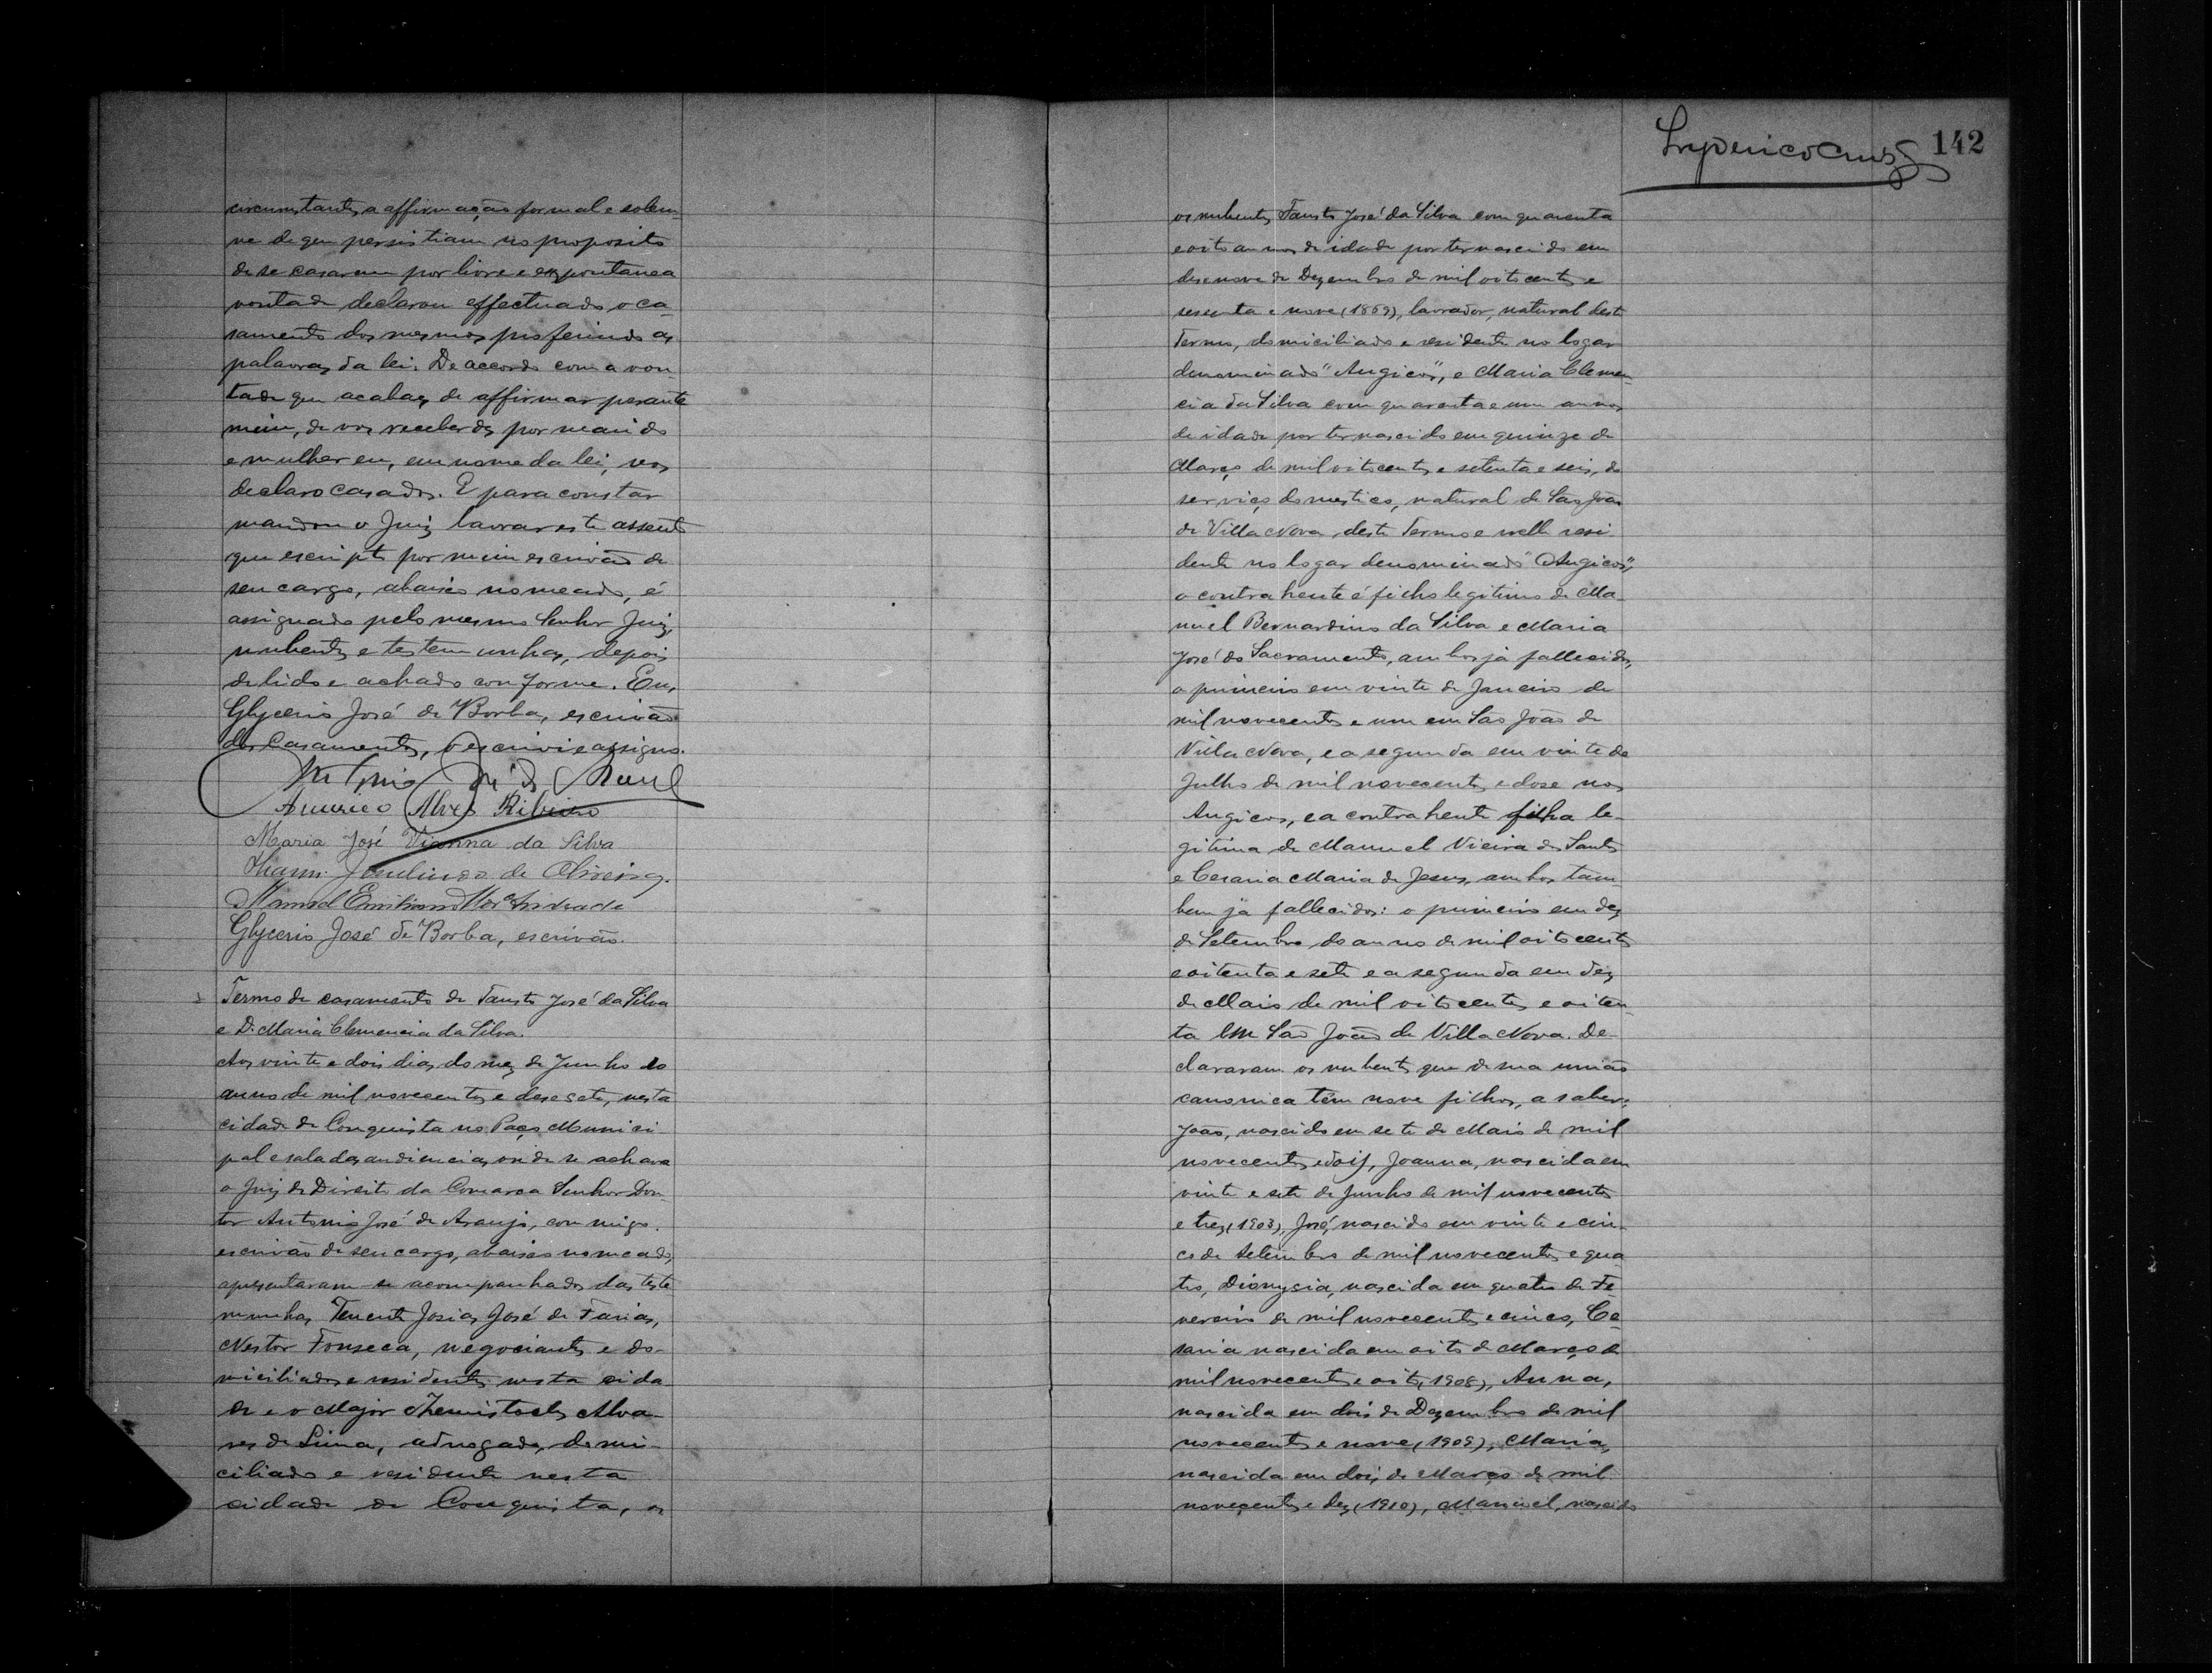 circumstantes, a affirmação formal e solem-
ne de que persistiam no proposito
de se casarem por livre e expontanea
vontade declarou effectuado o ca-
samento dos mesmos proferindo as
palavras da lei: De accordo com a von-
tade que acabaes de affirmar perante
mim, de vos receberdes por marido
e mulher eu, em nome da lei, vos
declaro casados. E para constar
mandou o Juiz lavrar este assento
que escripto por mim escrivão de
seu cargo, abaixo nomeado, é
assignado pelo mesmo Senhor Juiz,
nubentes e testemunhas, depois
de lido e achado conforme. Eu,
Glycerio José de Borba, escrivão
dos Casamentos, o escrivi e assigno.
Antonio José de
Americo Alves Ribeiro
Maria José Vianna da Silva
de Oliveira.
Manoel Emiliano de Andrade
Glycerio José de Borba, escrivão.
Termo de casamento de Fausto José da Silva
e D. Maria Clemencia da Silva.
Aos vinte e dois dias do mez de Junho do
anno de mil novecentos e desesete, nesta
cidade de Conquista no Paço Munici
pal e sala das audiencias, onde se achava
o Juiz de Direito da Comarca Senhor Dou-
tor Antonio José de Araujo, commigo
escrivão de seu cargo, abaixo nomeado,
apresentaram-se acompanhados das teste
munhas, Tenente Josias José de Farias,
Nestor Fonseca, negociantes e do-
miciliados e residentes nesta cida
de e o Major Themistocles Alva-
res de Lima, advogado, domi-
ciliado e residente nesta
cidade de Conquista, os
142
os nubentes, Fausto José da Silva com quarenta
e oito annos de idade por ter nascido em
desenove de Dezembro de mil oitocentos e
sesenta e nove (1869), lavrador, natural deste
Termo, domiciliado e residente no logar
denominado "Angicos", e Maria Clemen-
cia da Silva com quarenta e um annos
de idade por ter nascido em quinze de
Março de mil oitocentos e setenta e seis, do
serviço domestico, natural de São João
de Villa Nova, deste Termo e nelle resi
dente no logar denominado "Angicos",
o contrahente é filho legitimo de Ma-
nuel Bernardino da Silva e Maria
José do Sacramento, ambos já fallecidos,
o primeiro em vinte de Janeiro de
mil novecentos e um em São João de
Villa Nova, e a segunda em vinte de
Julho de mil novecentos e dose nos
Angicos, e a contrahente filha le-
gitima de Manuel Vieira dos Santos
e Cesaria Maria de Jesus, ambos tam-
bem já fallecidos: o primeiro em dez
de Setembro do anno de mil oitocentos
e oitenta e sete e a segunda em dez
de Maio de mil oitocentos e oiten-
ta em São João de Villa Nova. De-
clararam os nubentes que de sua união
canonica têm nove filhos, a saber:
João, nascido em sete de Maio de mil
novecentos e dois, Joanna, nascida em
vinte e sete de Junho de mil novecentos
e trez (1903), José, nascido em vinte e cin-
co de Setembro de mil novecentos e qua
tro, Dionysia, nascida em quatro de Fe
vereiro de mil novecentos e cinco, Ce-
saria nascida em oito de Março de
mil novecentos e oito, (1908), Anna,
nascida em dois de Dezembro de mil
novecentos e nove, (1909), Maria,
nascida em dois de Março de mil
novecentos e dez (1910), Manoel, nascido